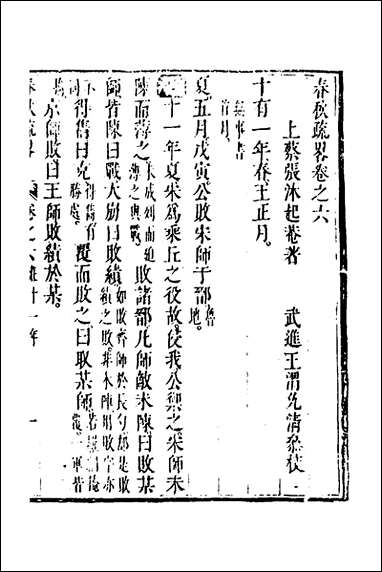 春秋疏畧卷之六
上蔡張沐起菴著 武進王渭先清叅校
十有一年春王正月。
無事書首月。
夏五月戊寅公敗宋師于鄑。魯地。
十一年夏宋為乘丘之役故侵我公禦之宋師未
陳而薄之未成列而迫薄之與戰。敗諸鄑凡師敵未陳曰敗某
師皆陳曰戰大崩曰敗績
得雋曰克 覆而敗之曰取某師
京師敗曰王師敗績於某。
春秋疏畧 卷之六莊十一年 一